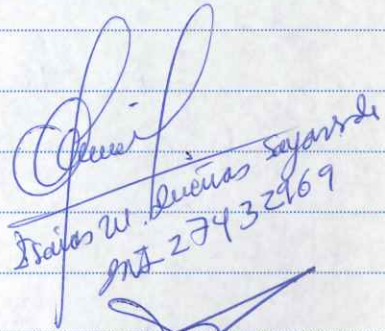 Isaías W. Dueñas Sayaverde
DNI 27432969